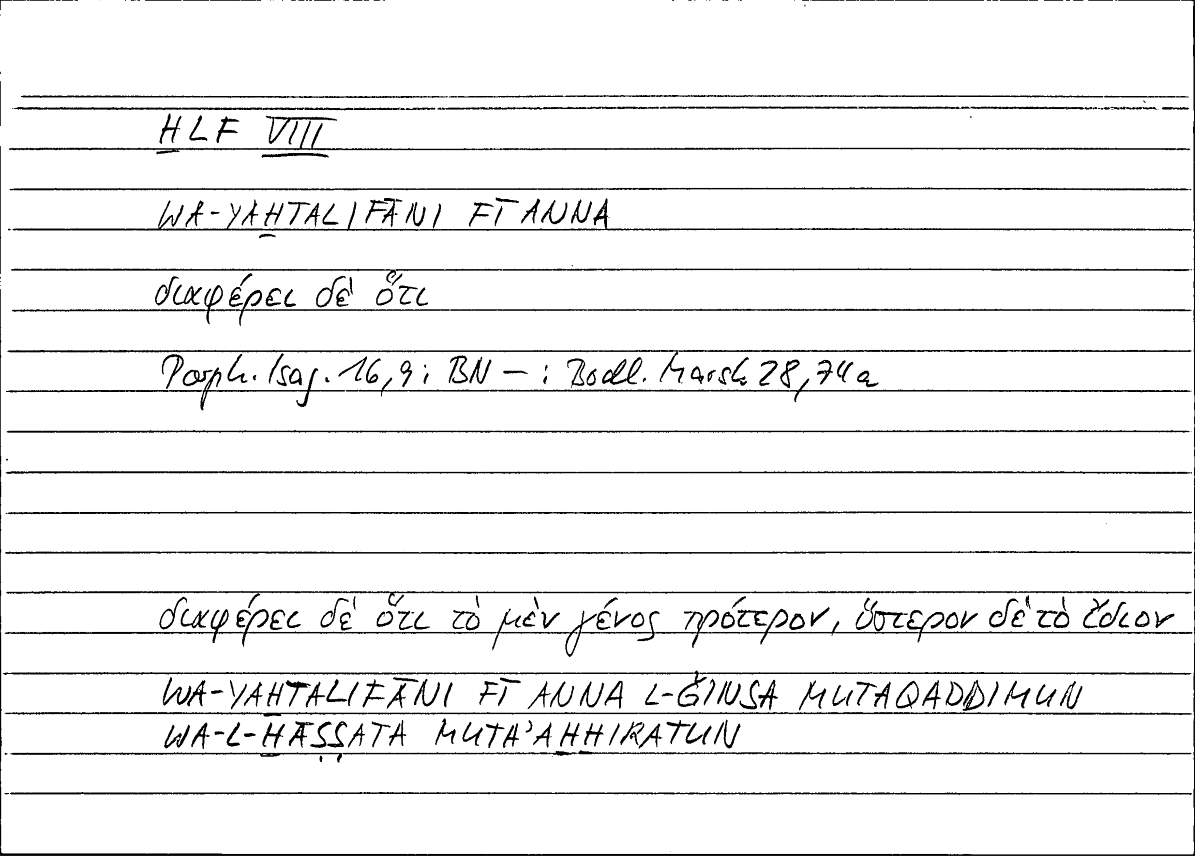 H̱LF VIII
WA-YAH̱TALIFĀNI FĪ ANNA
διαφέρει δὲ ὅτι
Porph. Isag. 16,9 ; BN – ; Bodl. Marsh 28,74a
διαφέρει δὲ ὅτι τὸ μὲν γένος πρότερον, ὕστερον δὲ τὸ ἴδιον
WA-YAH̱TALIFĀNI FĪ ANNA L-ǦINSA MUTAQADDIMUN
WA-L-H̱ĀṢṢATA MUTA’AH̱H̱IRATUN